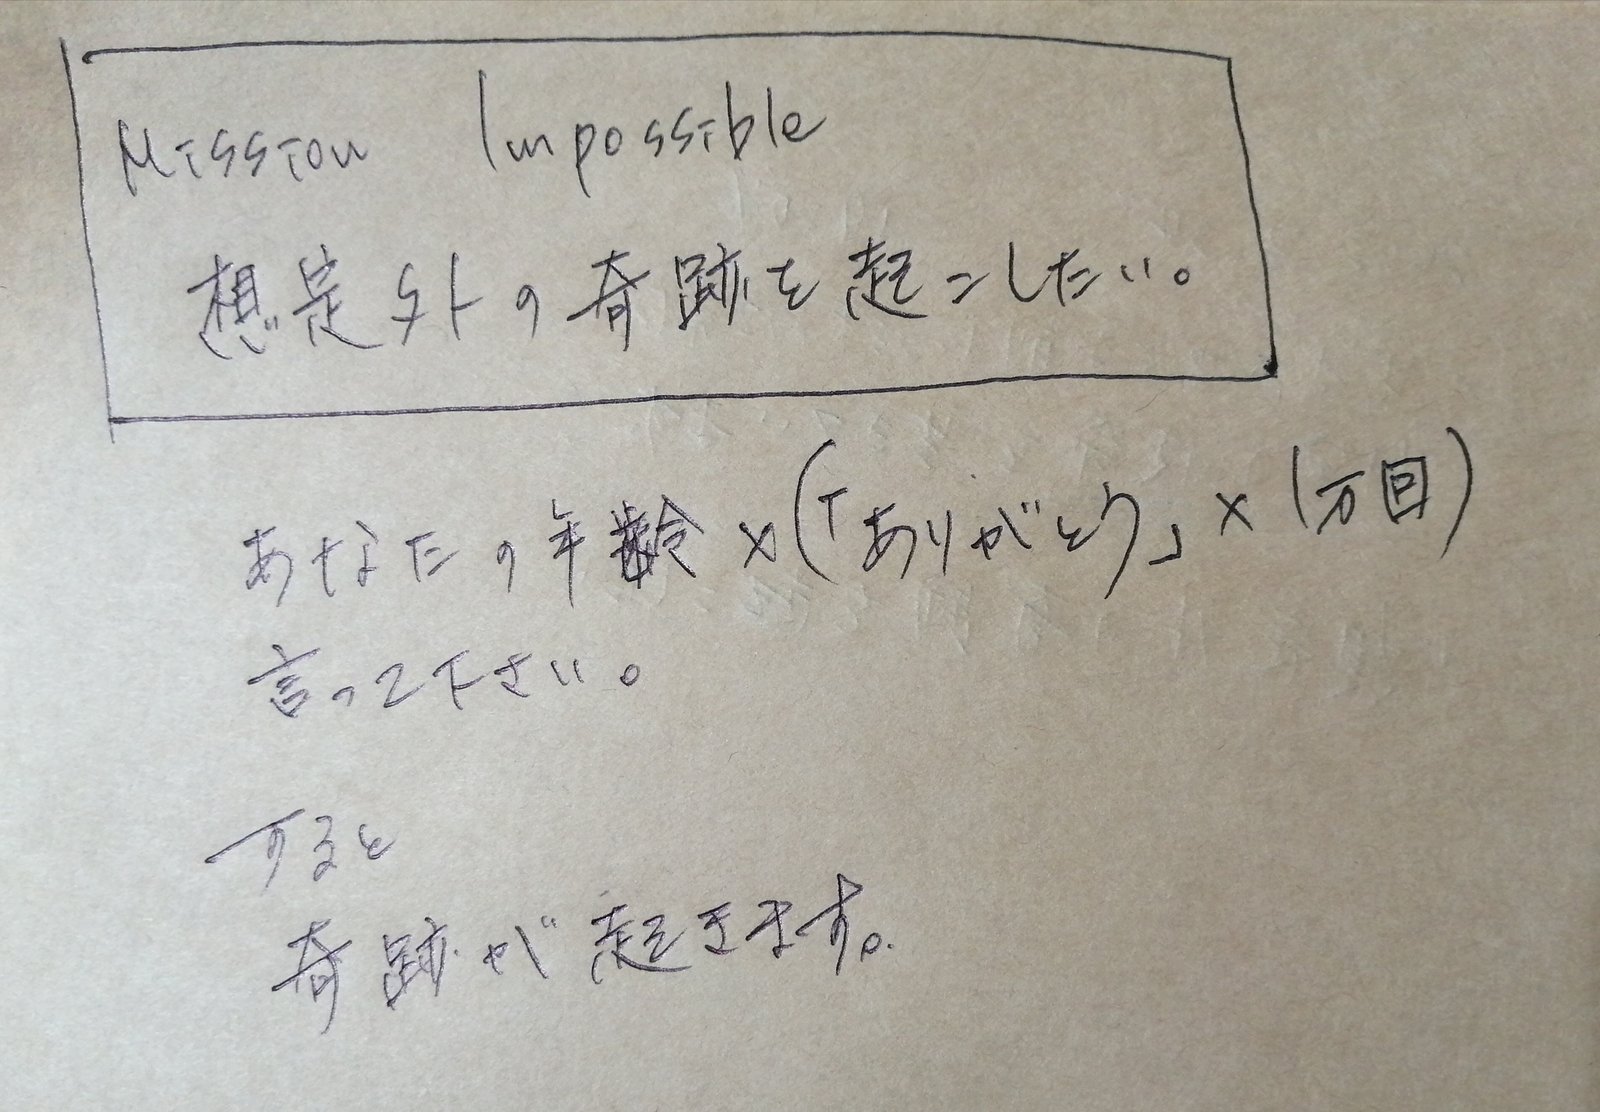 Mission Impossible
想定外の奇跡を起こしたい。
あなたの年齢×(「ありがとう」×1万回)
言って下さい。
すると
奇跡が起きます。